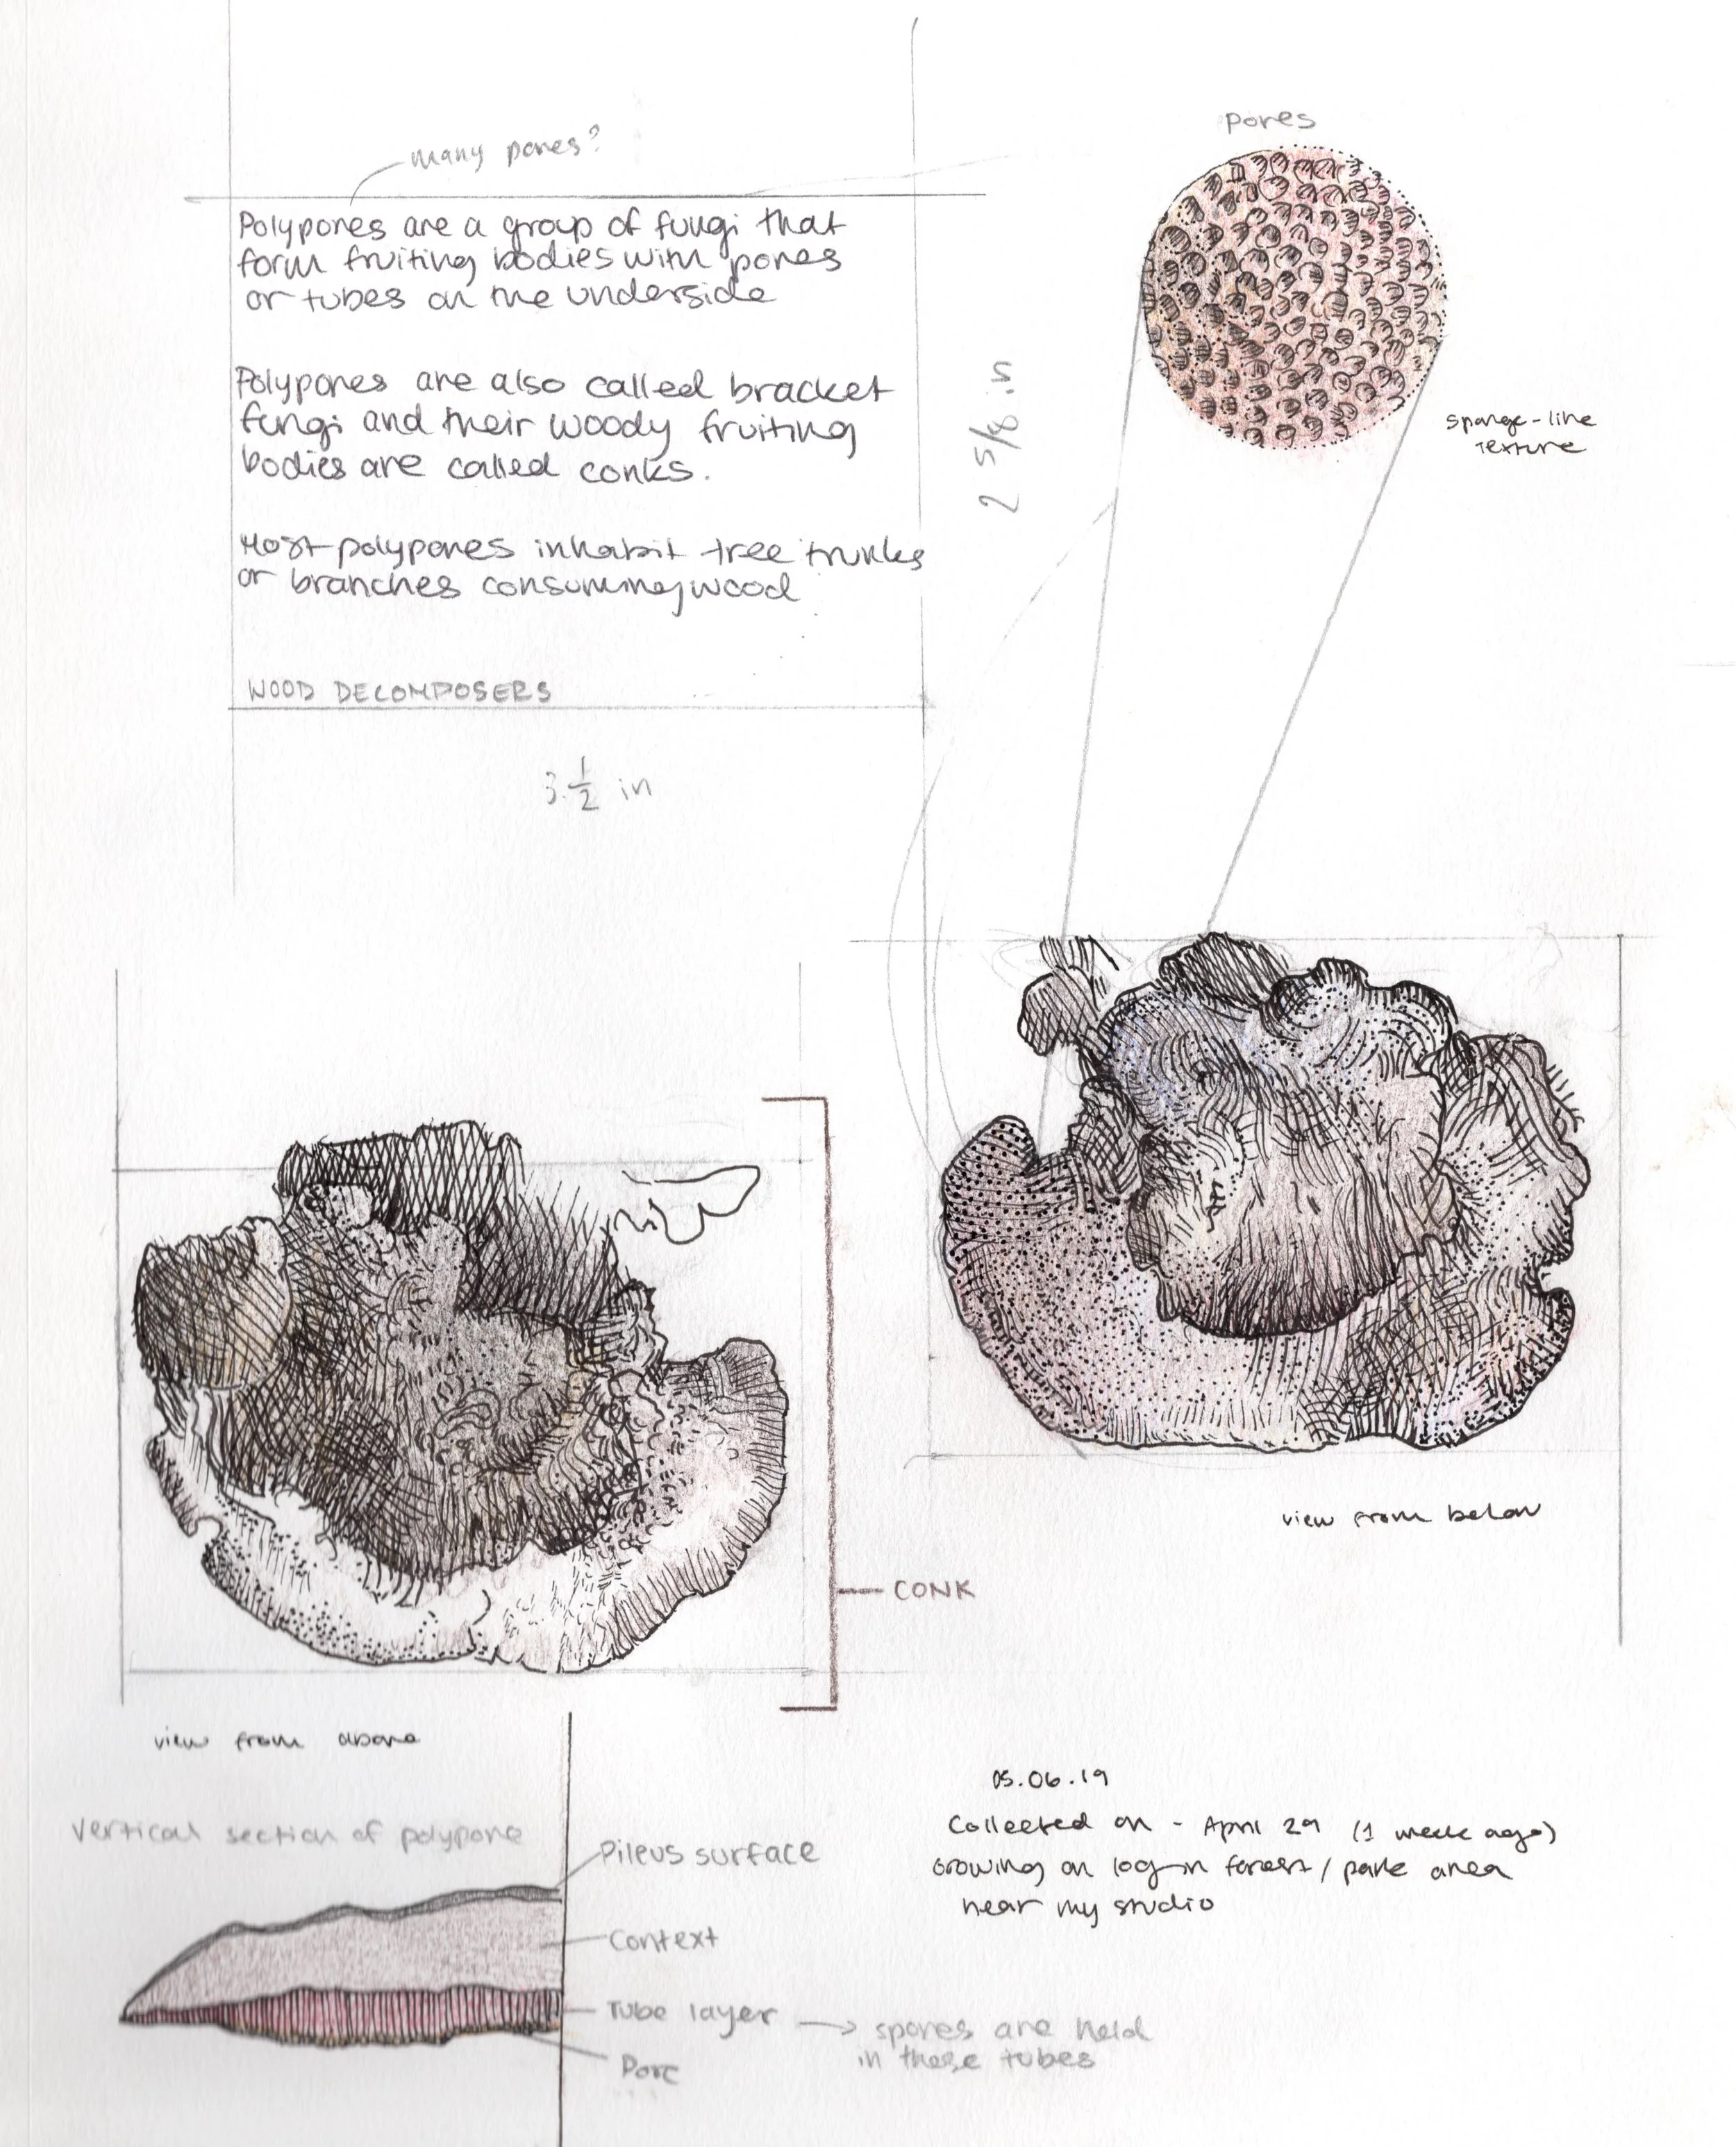 many pores?
Polypores are a group of fungi that
form fruiting bodies with pores
or tubes on the underside
Polypores are also called bracket
fungi and their woody fruiting
bodies are called conks.
Most polypores inhabit tree trunks
or branches consuming wood
WOOD DECOMPOSERS
3 1/2 in
2 5/8 in
pores
sponge-like
texture
view from below
CONK
view from above
vertical section of polypore
Pileus surface
Context
Tube layer → spores are held
in these tubes
Pore
05.06.19
Collected on - April 29 (1 week ago)
Growing on log in forest / park area
near my studio